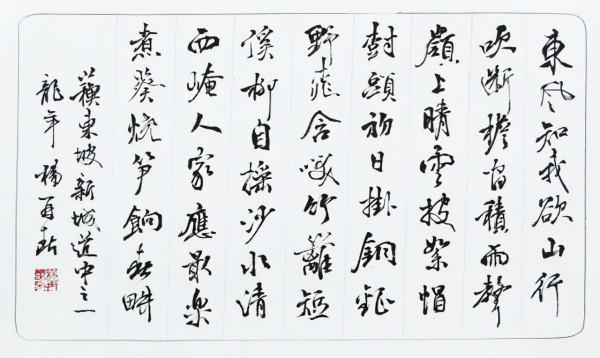 東風知我欲山行
吹斷檐間積雨聲
嶺上晴雲披絮帽
樹頭初日掛銅鉦
野桃含笑竹籬短
溪柳自搖沙水清
西崦人家應最樂
煮葵燒笋餉春畊
蘇東坡新城道中之一
龍年楊再春